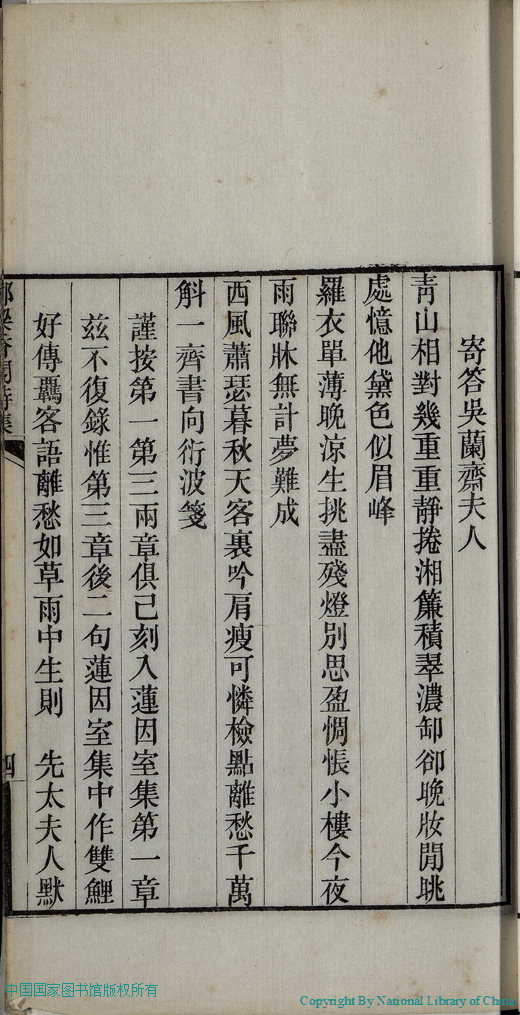 寄答吳蘭齋夫人
青山相對幾重重靜捲湘簾積翠濃卸卻晚妝閒眺
處憶他黛色似眉峰
羅衣單薄晚涼生挑盡殘燈別思盈惆悵小樓今夜
雨聯牀無計夢難成
西風蕭瑟暮秋天客裏吟肩瘦可憐檢點離愁千萬
斛一齊書向衍波箋
謹按第一第三兩章俱已刻入蓮因室集第一章
茲不復錄惟第三章後二句蓮因室集中作雙鯉
好傳羈客語離愁如草雨中生則　先太夫人默
四
中国国家图书馆版权所有
Copyright By National Library of China